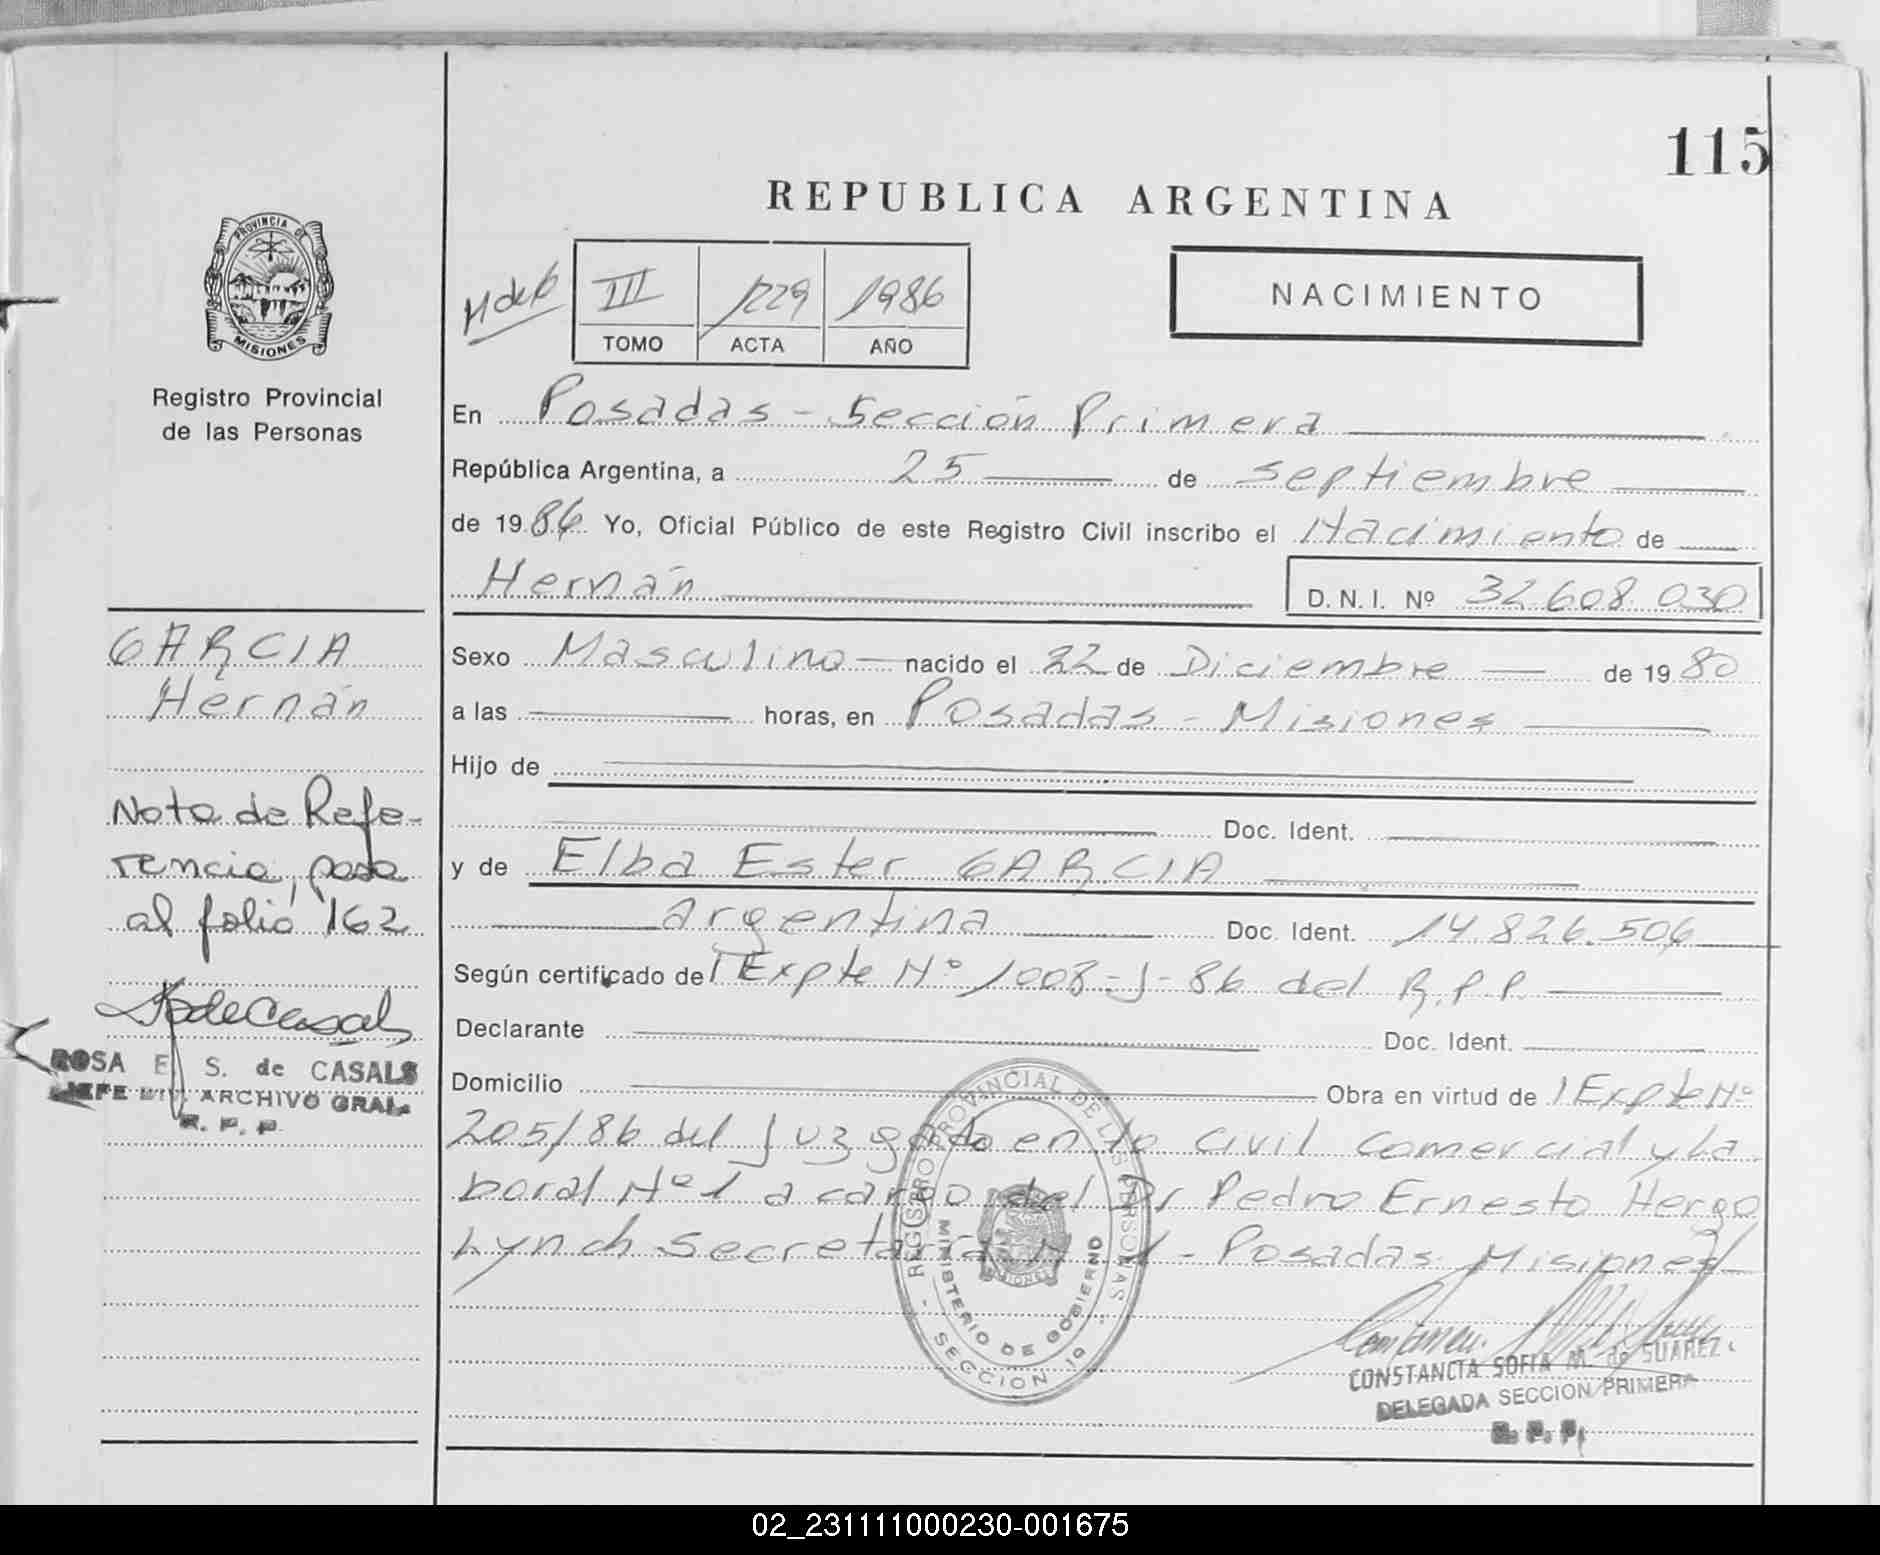 115
REPUBLICA ARGENTINA
PROVINCIA DE
MISIONES
III 1229 1986
TOMO ACTA AÑO
NACIMIENTO
Registro Provincial
de las Personas
En Posadas - Sección Primera
República Argentina, a 25 de septiembre
de 1986 Yo, Oficial Público de este Registro Civil inscribo el Nacimiento de
Hernán D.N.I. Nº 32.608.030
GARCIA
Hernán
Nota de Refe-
rencia, pasa
al folio 162
ROSA E. S. de CASALS
JEFE ARCHIVO GRAL.
R. P. P.
Sexo Masculino nacido el 22 de Diciembre de 1980
a las horas, en Posadas - Misiones
Hijo de
Doc. Ident.
y de Elba Ester GARCIA
argentina Doc. Ident. 14.826.506
Según certificado de Expte Nº 1008-J-86 del R.P.P.
Declarante Doc. Ident.
Domicilio Obra en virtud de Expte Nº
205/86 del Juzgado en lo Civil Comercial y La
boral Nº 1 a cargo del Dr Pedro Ernesto Hergo
Lynch Secretaria Nº 1 - Posadas Misiones
REGISTRO PROVINCIAL DE LAS PERSONAS
MINISTERIO DE GOBIERNO
MISIONES
SECCION 1º
CONSTANCIA SOFIA M. de SUAREZ
DELEGADA SECCION PRIMERA
R. P. P.
02_231111000230-001675